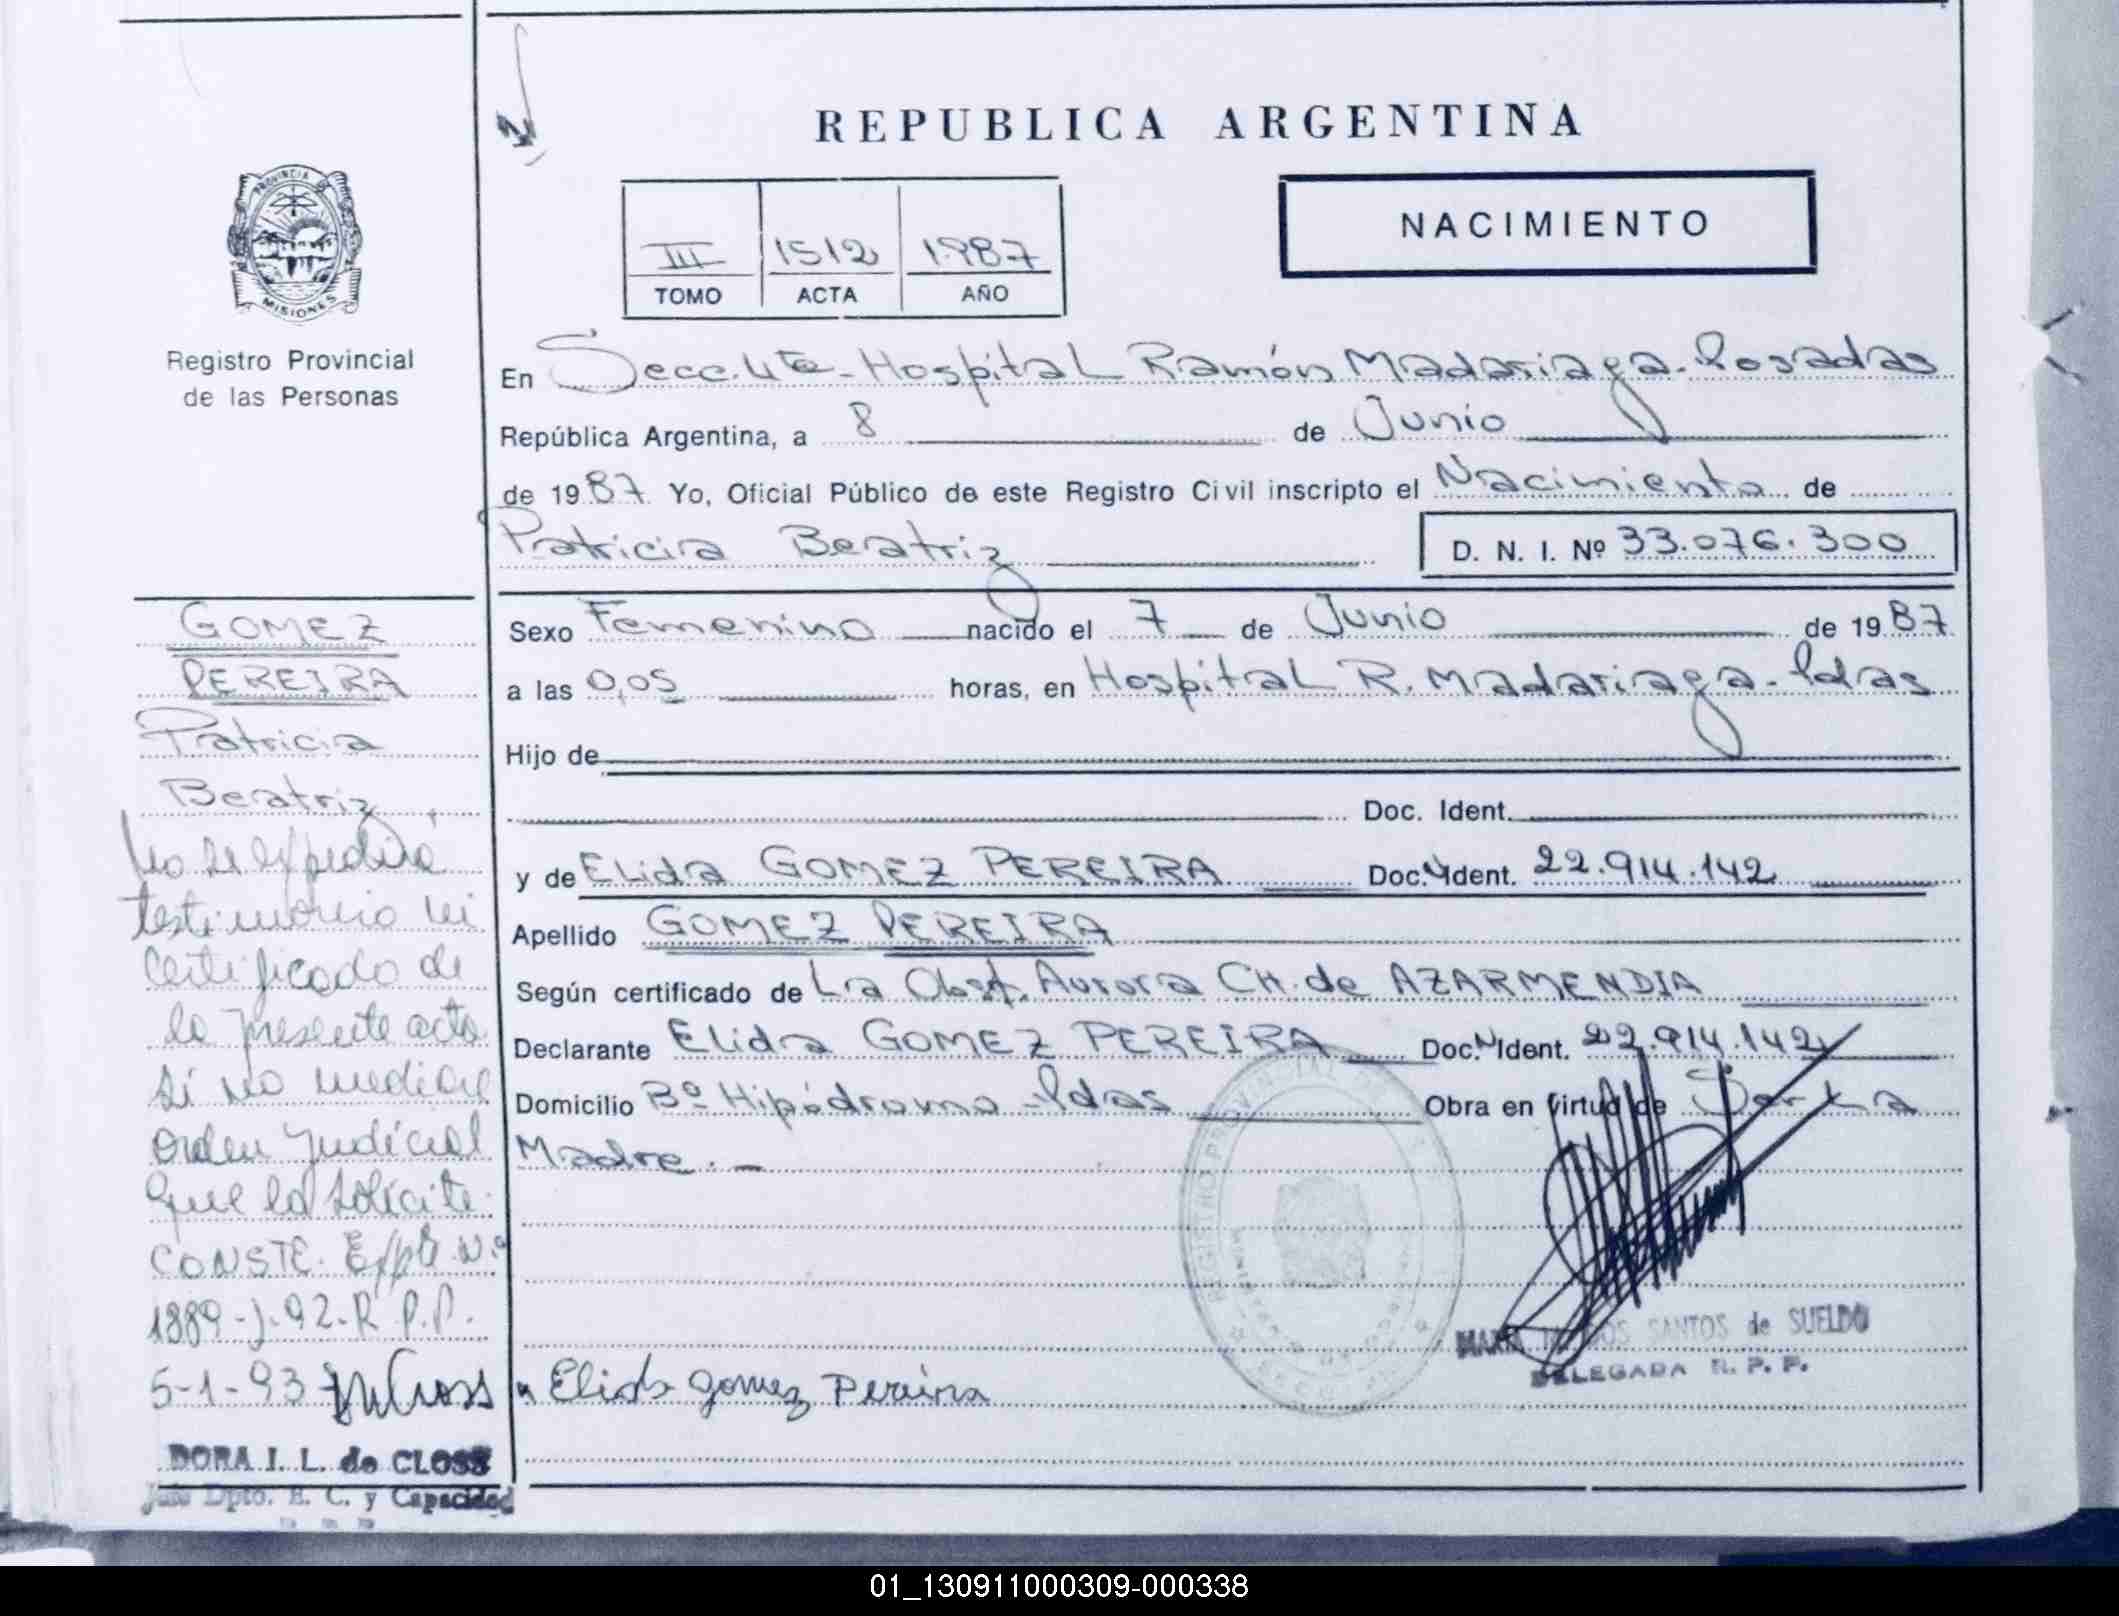 REPUBLICA ARGENTINA
NACIMIENTO
III 1512 1987
TOMO ACTA AÑO
PROVINCIA
MISIONES
Registro Provincial
de las Personas
En Secc. 4ta - Hospital Ramón Madariaga - Posadas
República Argentina, a 8 de Junio
de 1987 Yo, Oficial Público de este Registro Civil inscripto el Nacimiento de
Patricia Beatriz D. N. I. Nº 33.076.300
Sexo Femenino nacido el 7 de Junio de 1987
a las 0,05 horas, en Hospital R. Madariaga - Pdas
Hijo de
Doc. Ident.
y de Elida GOMEZ PEREIRA Doc. Ident. 22.914.142
Apellido GOMEZ PEREIRA
Según certificado de La Obst. Aurora CH. de AZARMENDIA
Declarante Elida GOMEZ PEREIRA Doc. Ident. 22.914.142
Domicilio Bº Hipódromo - Pdas Obra en virtud de Ser La
Madre. -
Elida Gomez Pereira
SANTOS de SUELDO
DELEGADA R. P. P.
GOMEZ
PEREIRA
Patricia
Beatriz
No se expedirá
testimonio ni
certificado de
la presente acta
si no mediare
orden judicial
que lo solicite.
CONSTE. Expte Nº
1889-J-92-R.P.P.
5-1-93
DORA I. L. de CLOSS
Jefe Dpto. E. C. y Capacidad
01_130911000309-000338